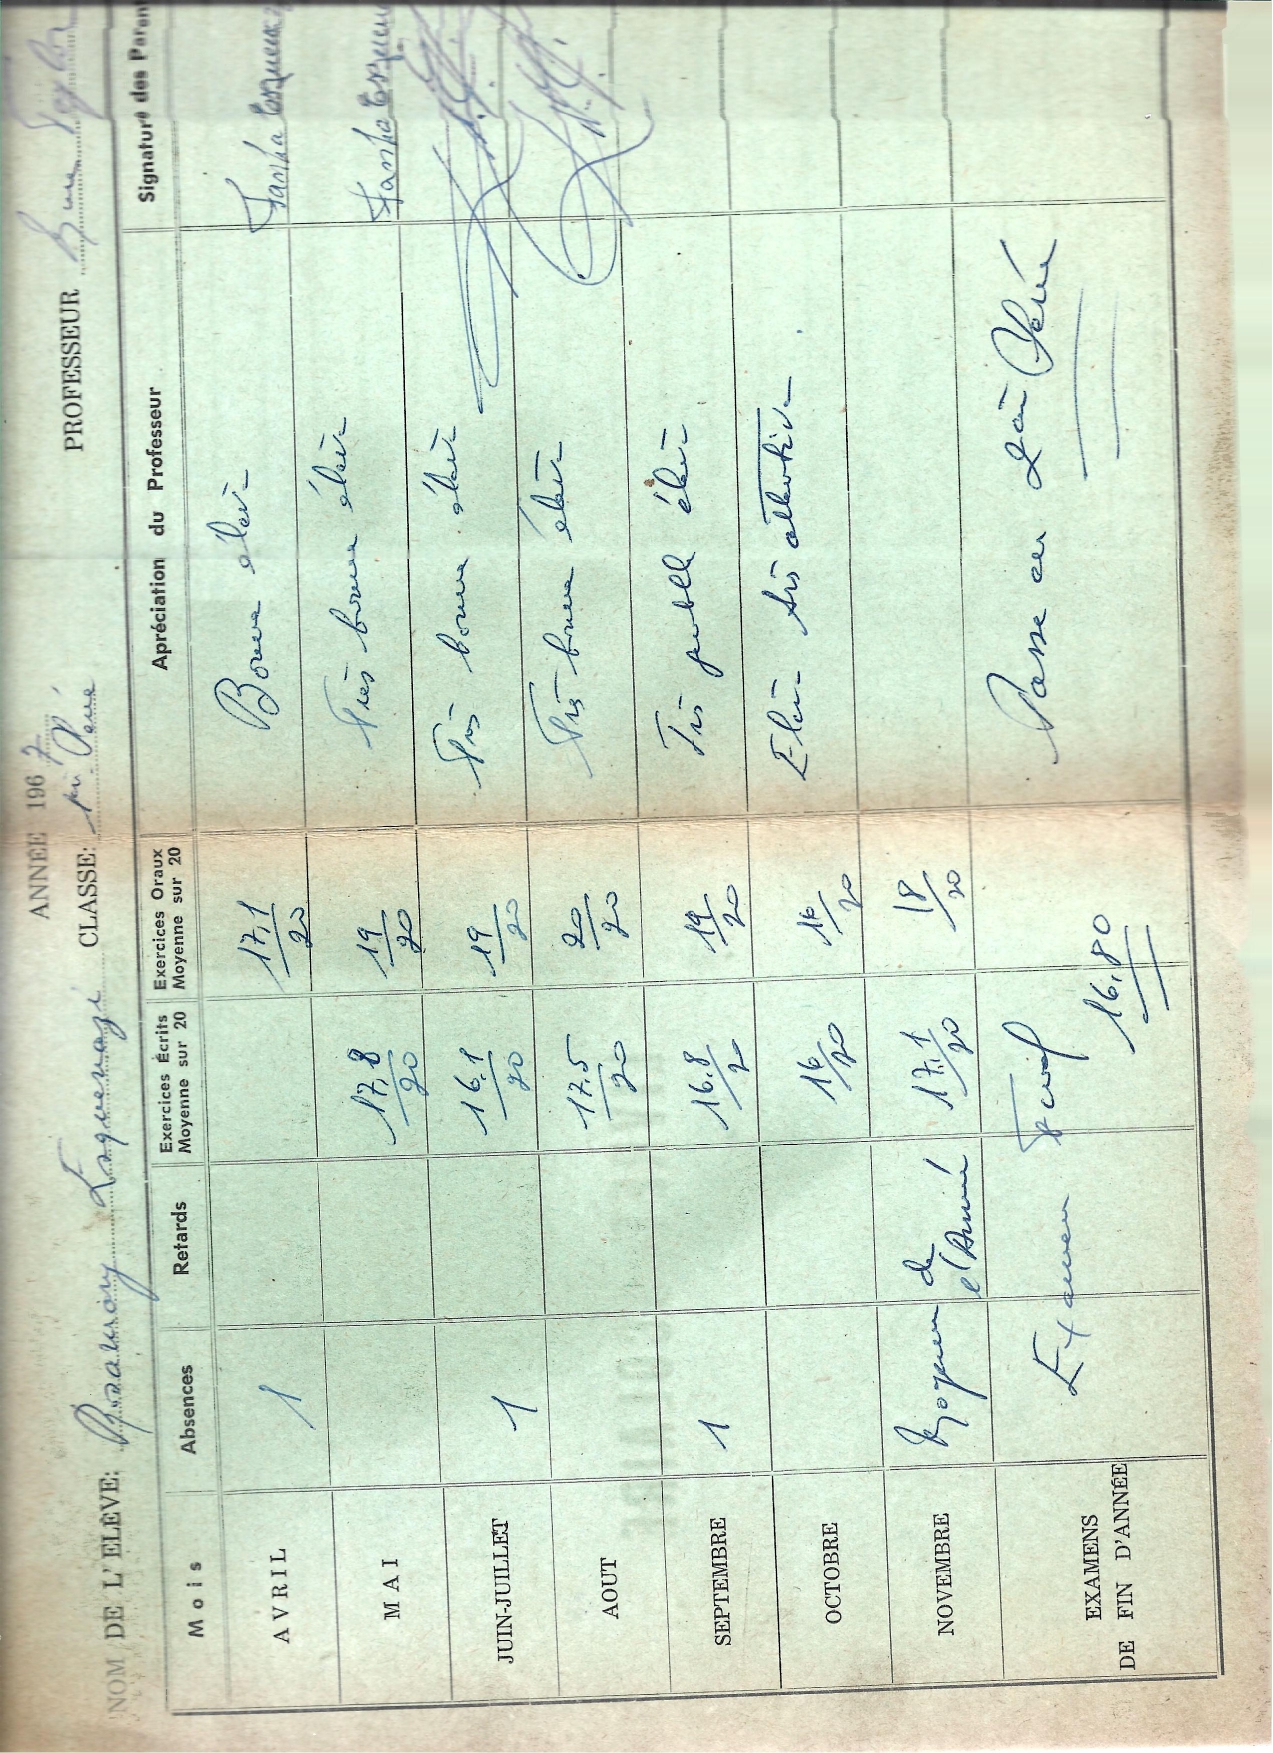 ANNÉE 1967
NOM DE L'ELÈVE: Esquenazi CLASSE: PROFESSEUR
Mois Absences Retards Exercices Écrits Moyenne sur 20 Exercices Oraux Moyenne sur 20 Apréciation du Professeur Signature des Paren
AVRIL 1 17,1/20 Bonne élève
MAI 17,8/20 19/20 Très bonne élève
JUIN-JUILLET 1 16,1/20 19/20 Très bonne élève
AOUT 17.5/20 20/20 Très bonne élève
SEPTEMBRE 1 16.8/20 19/20 Très élève
OCTOBRE 16/20 16/20 Elève très attentive.
NOVEMBRE Moyenne de l'Année 17,1/20 18/20
EXAMENS DE FIN D'ANNÉE Examen Final 16,80 Passe en